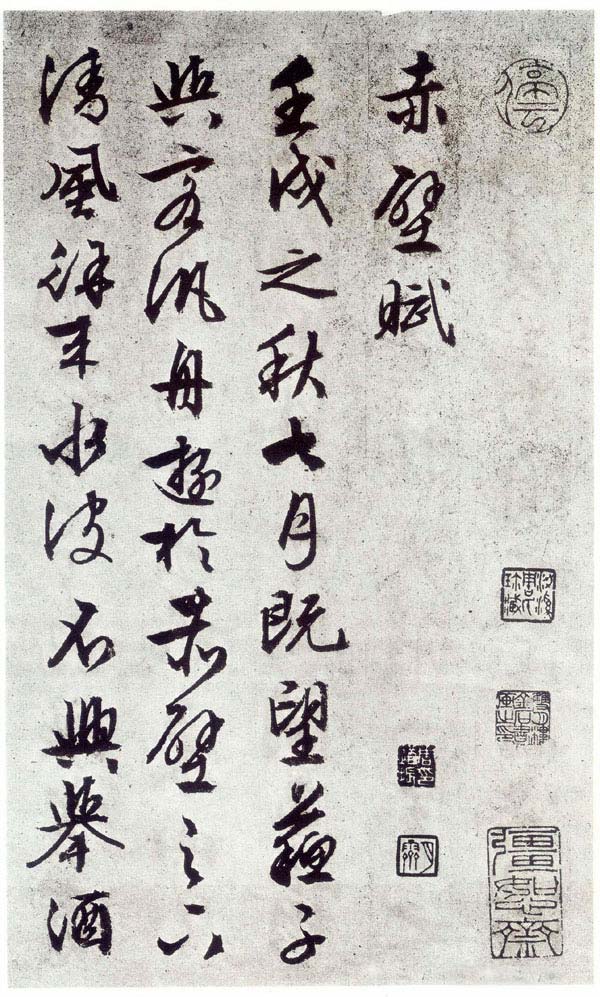 停雲
彊恕齋
赤壁賦
壬戌之秋七月既望蘇子
與客汎舟遊於赤壁之下
清風徐來水波不興舉酒